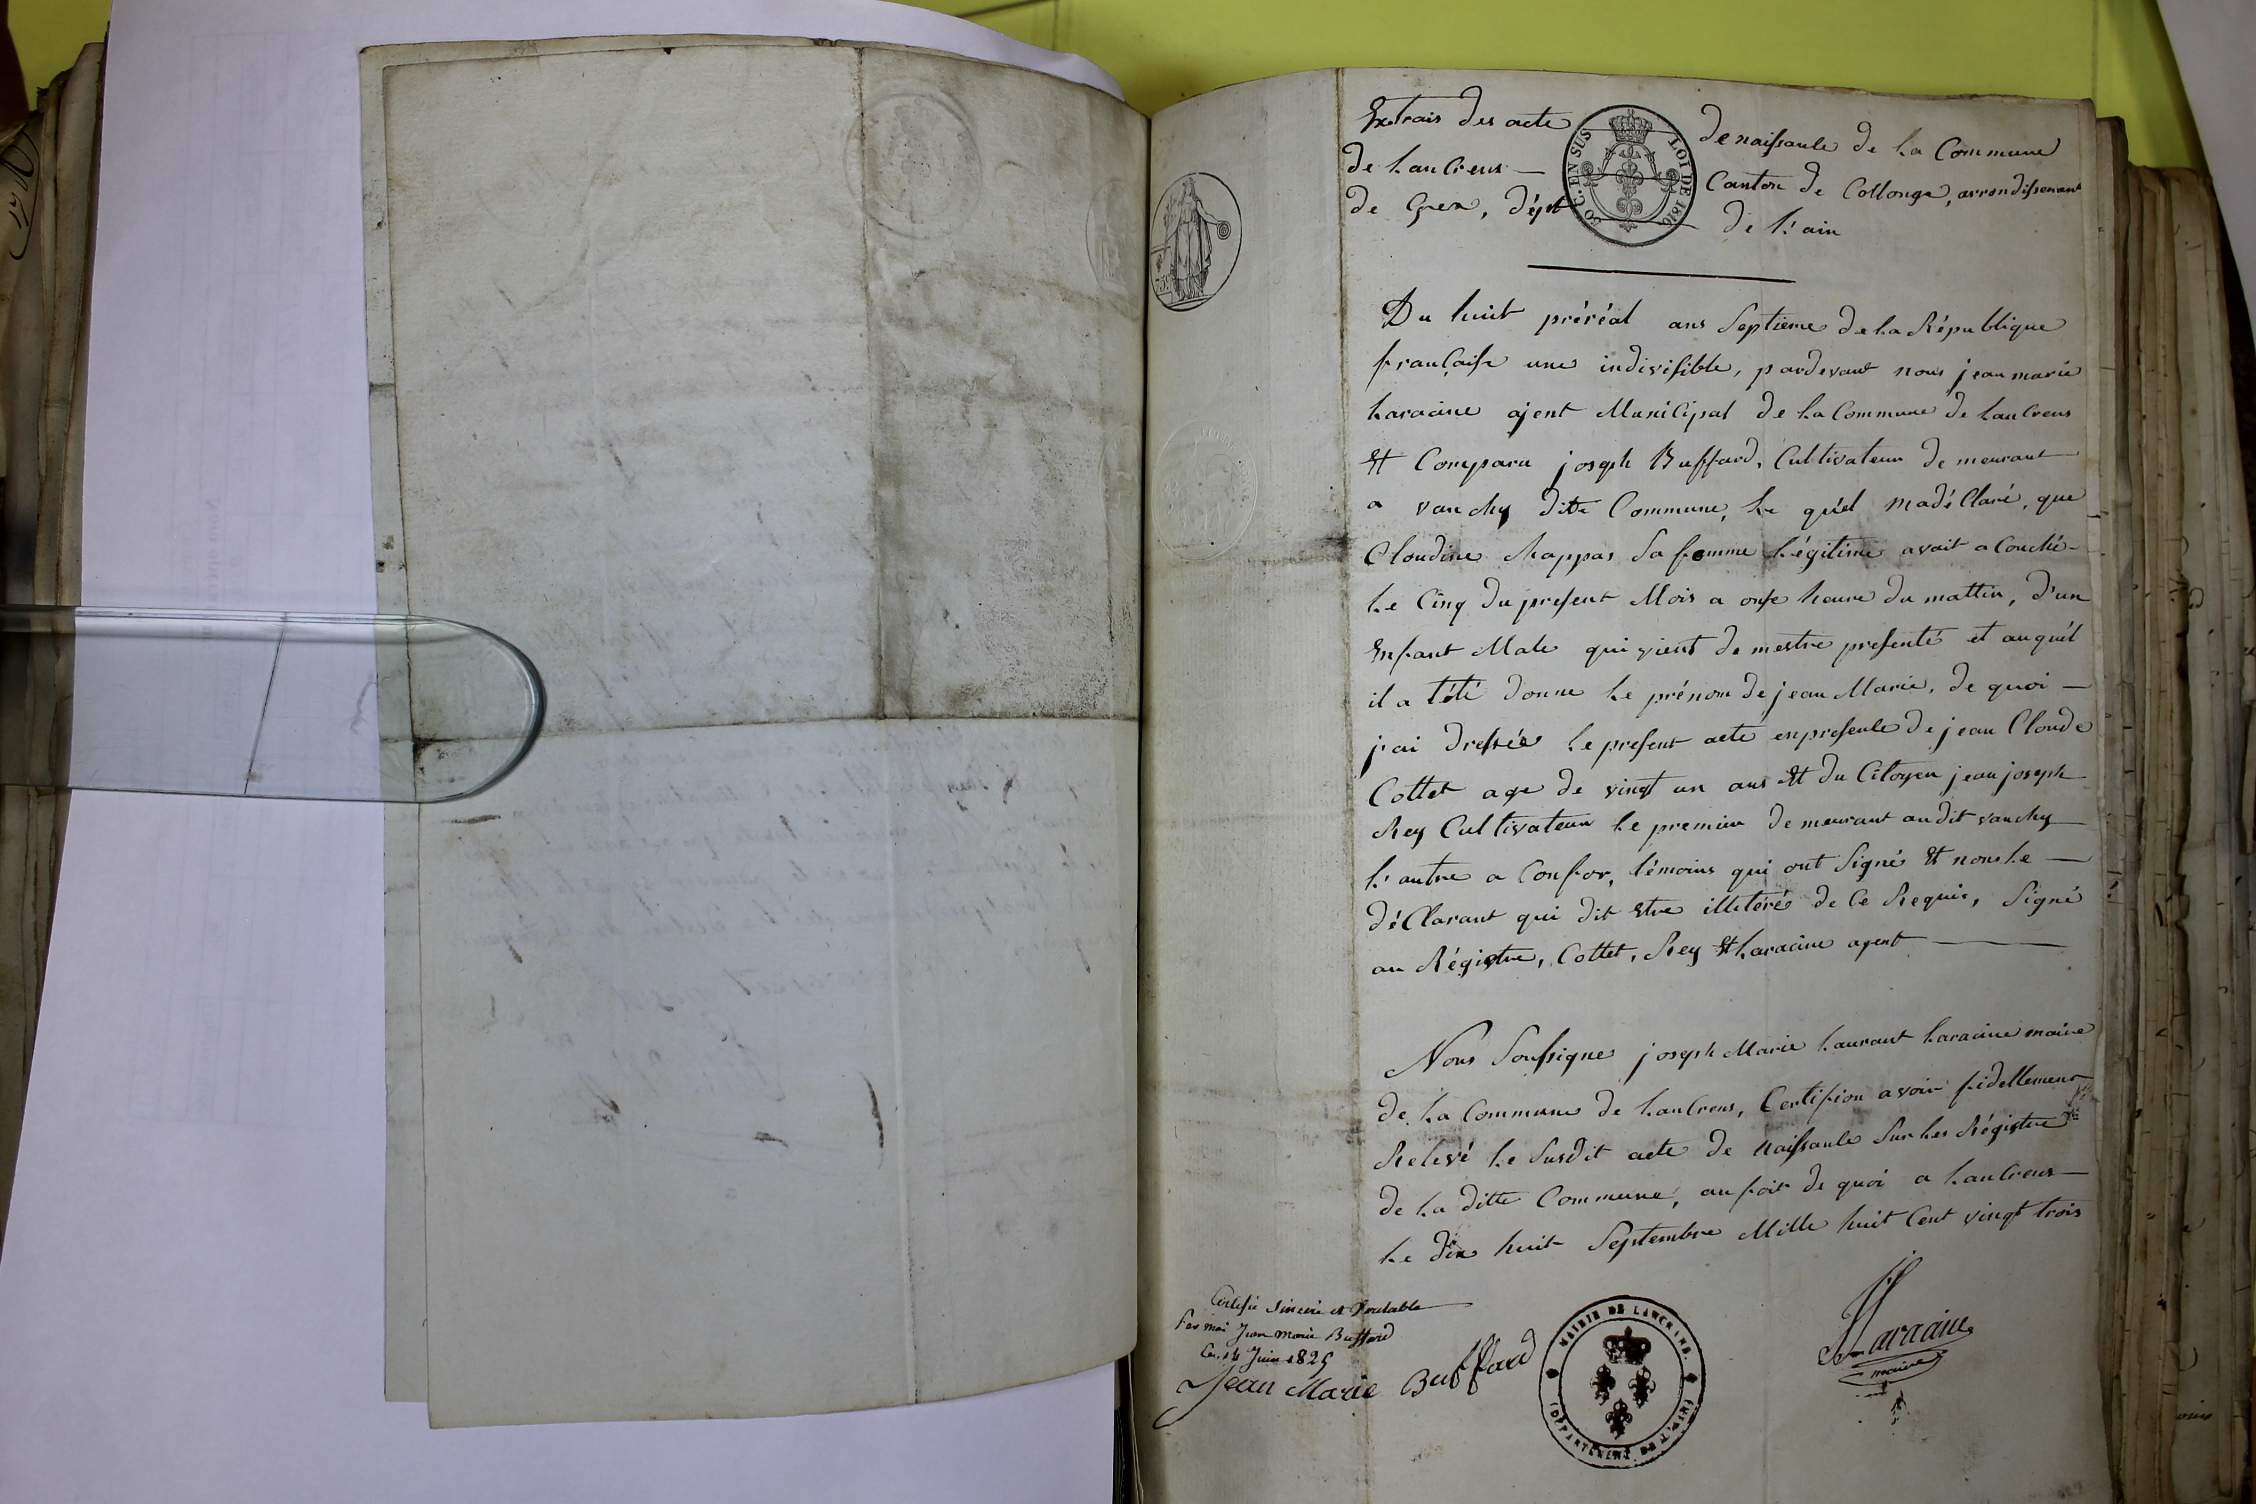 Extrais des acte de naissance de la Commune
de Lancrens — Canton de Collonge, arrondissemant
de Gex, dépt de l'ain
30 C. EN SUS LOI DE 1816
Du huit préréal ans Septieme de la République
francaise une indivisible, pardevant nous jean marie
Laracine ajent Municipal de la Commune de Lancrens
Et Comparu joseph Buffard, Cultivateur demeurant
a vanchy ditte Commune, le quél madéClaré, que
Cloudine Chappas Sa femme légitime avait a Couché -
le Cinq du présent Mois a onse heure du mattin, d'un
Enfant Male qui vient de mestre presenté et auquél
il a tété donne le prénom de jean Marie, de quoi —
j'ai dressée le present acte en presence de jean Cloude
Cottet age de vingt un ans Et du Citoyen jean joseph
Rey Cultivateur le premier demeurant audit vanchy
l'autre a Confor, témoins qui ont Signé Et non le —
déClarant qui dit Etre illetéré de Ce Requis, Signé
au Régistre, Cottet, Rey Et Laracine agent —
Nous Soussigne joseph Marie Laurant Laracine maire
de la Commune de Lancrens, Certifion avoir fidellement
Relevé le Susdit acte de naissance Sur les Régistre
de la ditte Commune, au foit de quoi a Lancrens —
le dix huit Septembre Mille huit Cent vingt trois
Certifié sincere et Veritable
Par moi Jean marie Buffard
Ce. 14 Juin 1825
Jean Marie Buffard
MAIRIE DE LANCRANS.
(DÉPARTEMENT DE L'AIN)
Laracine
maire